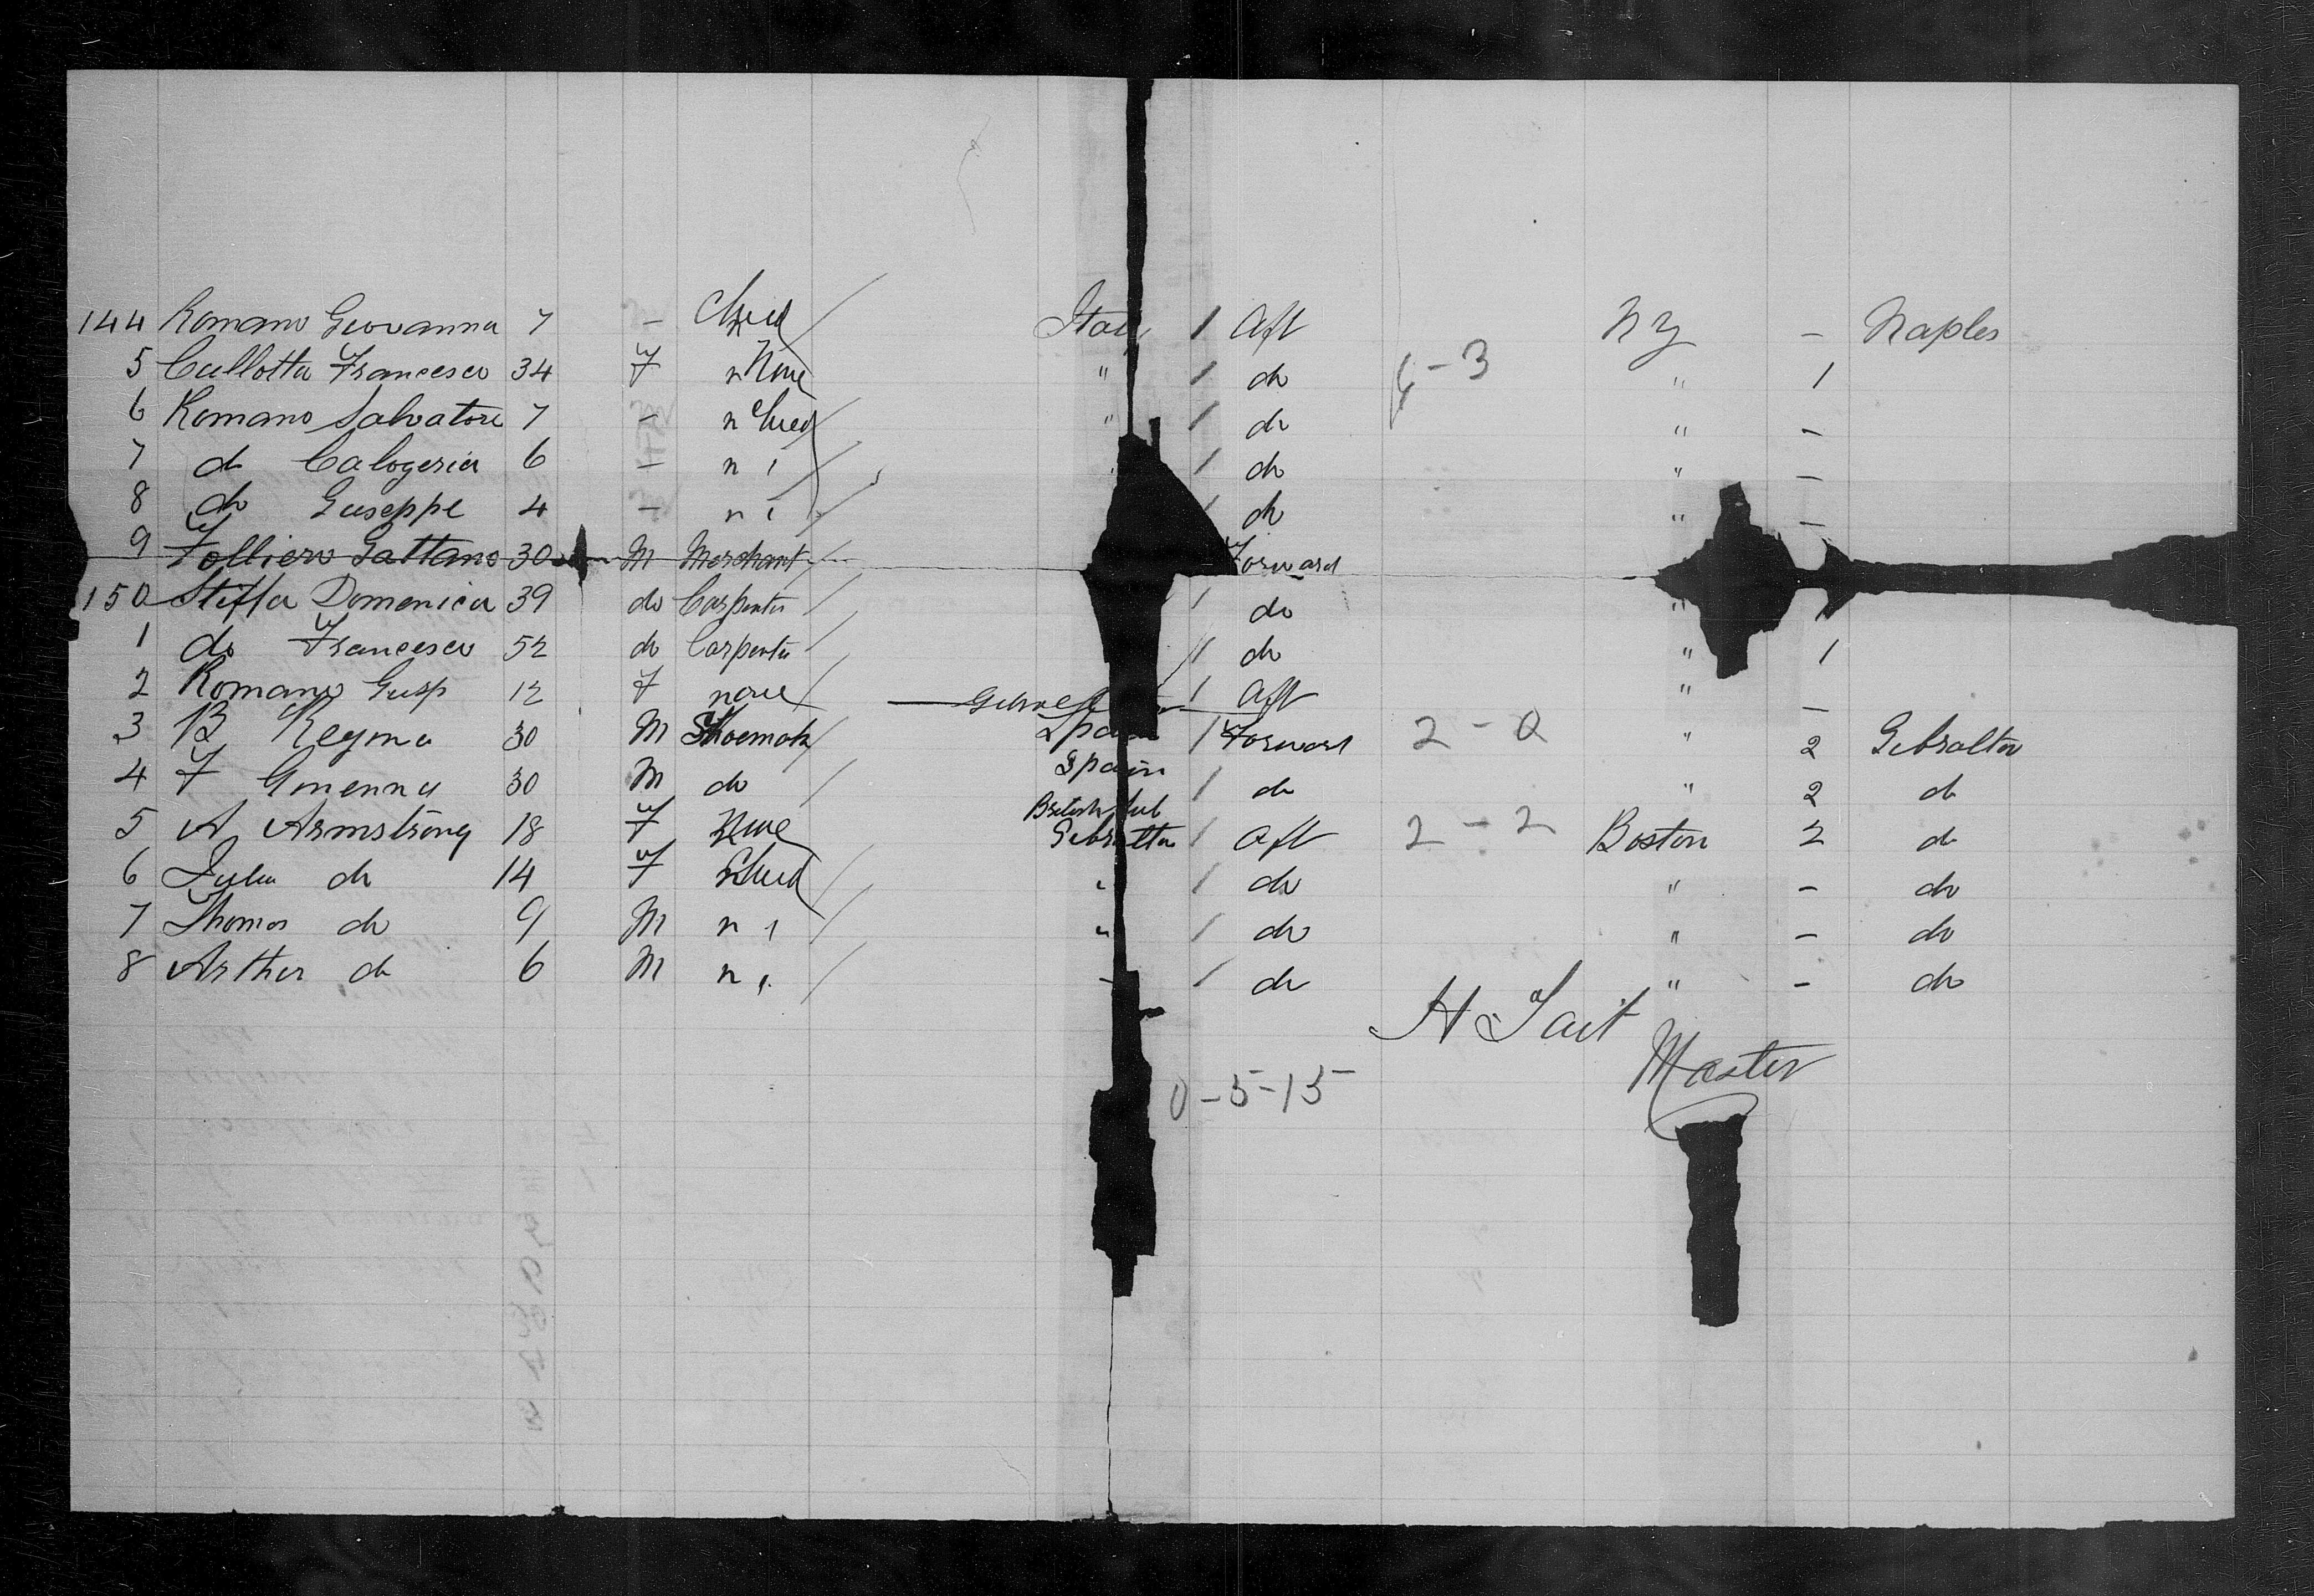 144 Romano Giovanna 7 - Child Italy 1 Aft NY - Naples
5 Cullotta Francesco 34 F None " 1 do 6-3 " 1
6 Romano Salvatore 7 - Child " 1 do " -
7 do Calogeria 6 - " 1 do " -
8 do Guseppe 4 - " do " -
9 Folliero Gattano 30 M Merchant Forward
150 Steffa Domenica 39 do Carpenter 1 do "
1 do Francesco 52 do Carpenter 1 do " 1
2 Romano Gusp 12 F none 1 Aft " -
3 B Reyma 30 M Shoemak Spain 1 Forward 2-0 " 2 Gibraltar
4 F Gmenna 30 M do Spain 1 do " 2 do
British Sub
5 A Armstrong 18 F None Gibraltar 1 Aft 2-2 Boston 2 do
6 Julia do 14 F Child " 1 do " - do
7 Thomas do 9 M " " 1 do " - do
8 Arther do 6 M " 1 do " - do
H Tait
Master
0-5-15